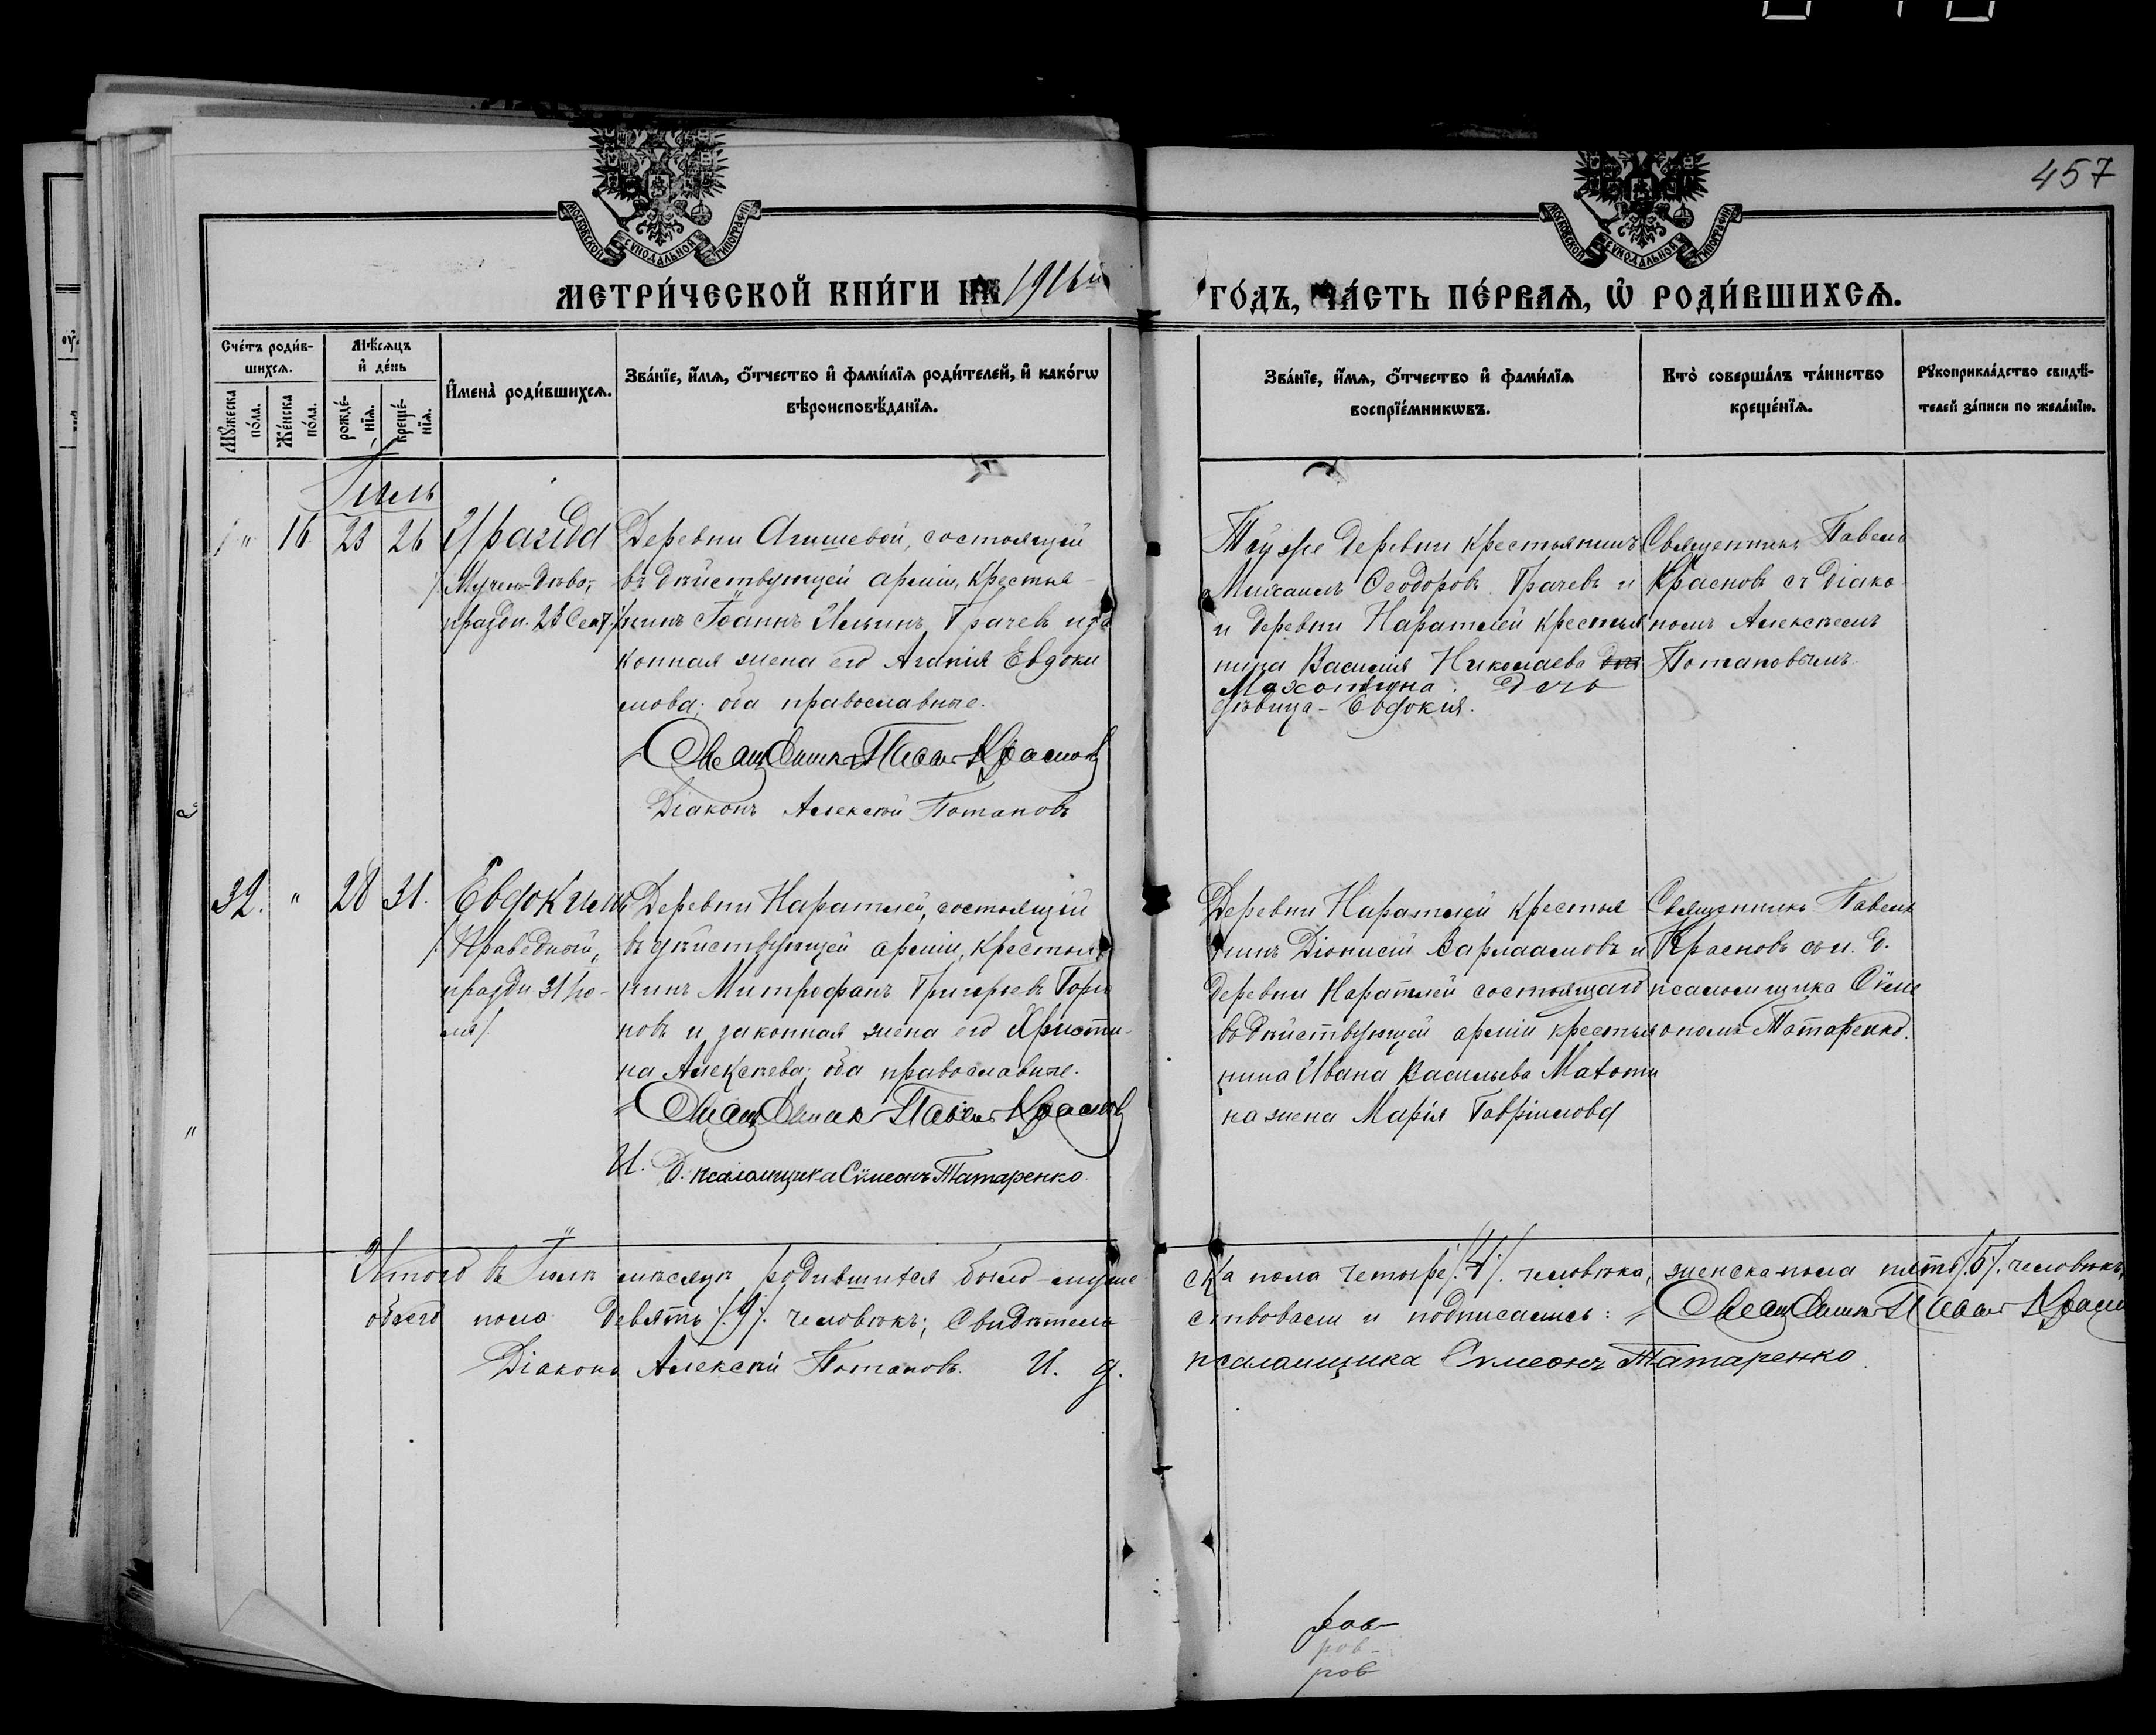 457
МОСКОВСКОЙ СѴНОДАЛЬНОЙ ТИПОГРАФІИ
МОСКОВСКОЙ СѴНОДАЛЬНОЙ ТИПОГРАФІИ
МЕТРИ́ЧЕСКОЙ КНИ́ГИ НА 1916й ГО́ДЪ, ЧА́СТЬ ПЕ́РВАѦ, Ѡ҆ РОДИ́ВШИХСѦ.
Сче́тъ роди́в-
шихсѧ.
Мꙋ́жеска
по́ла.
Же́нска
по́ла.
Мѣ́сѧцъ
и҆ де́нь
рожде́-
нїѧ.
креще́-
нїѧ.
И҆мена̀ роди́вшихсѧ.
Зва́нїе, и҆́мѧ, ѻ҆́тчество и҆ фами́лїѧ роди́телей, и҆ како́гѡ
вѣроисповѣ́данїѧ.
Зва́нїе, и҆́мѧ, ѻ҆́тчество и҆ фами́лїѧ
воспрїе́мникѡвъ.
Кто̀ соверша́лъ та́инство
креще́нїѧ.
Рꙋкоприкла́дство свидѣ́-
телей за́писи по жела́нїю.
Іюль
" 16 23 26 Ираида
Мучен. дѣва,
праздн. 23 Сент.
Деревни Агишевой, состоящій
въ дѣйствующей арміи, крестья-
нинъ Іоаннъ Ильинъ Грачевъ и за
конная жена его Агапія Евдоки
мова; оба православные.
Священникъ Павелъ Красновъ
Діаконъ Алексѣй Потаповъ
Той же деревни крестьянинъ
Михаилъ Ѳеодоровъ Грачевъ и
и деревни Наратлей крестья
нина Василія Николаева
дочь
дѣвица - Евдокія.
Священникъ Павелъ
Красновъ съ діако
номъ Алексѣемъ
Потаповымъ.
32. " 28 31. Евдокимъ
Праведный,
праздн. 31 Ію-
ля
Деревни Наратлей, состоящій
въ дѣйствующей арміи, крестья
нинъ Митрофанъ Григорьевъ Горш
ковъ и законная жена его Христи-
на Алексѣева; оба православные.
Священникъ Павелъ Красновъ
И. д. псаломщика Сѵмеонъ Татаренко.
Деревни Наратлей крестья
нинъ Діонисій Варлаамовъ и
деревни Наратлей состоящаго
въ дѣйствующей арміи крестья
нина Ивана Васильева Махоти
на жена Марія Гавріилова
Священникъ Павелъ
Красновъ съ и. д.
псаломщика Сѵме
ономъ Татаренко.
Итого въ Іюлѣ мѣсяцѣ родившихся было - муже
ска пола четыре /4/ человѣка, женска пола пять /5/ человѣкъ,
обоего пола девять /9/ человѣкъ; Свидѣтель
ствовали и подписались: Священникъ Павелъ Красн
Діаконъ Алексѣй Потаповъ. И. д.
псаломщика Сѵмеонъ Татаренко.
ров
ров
ров